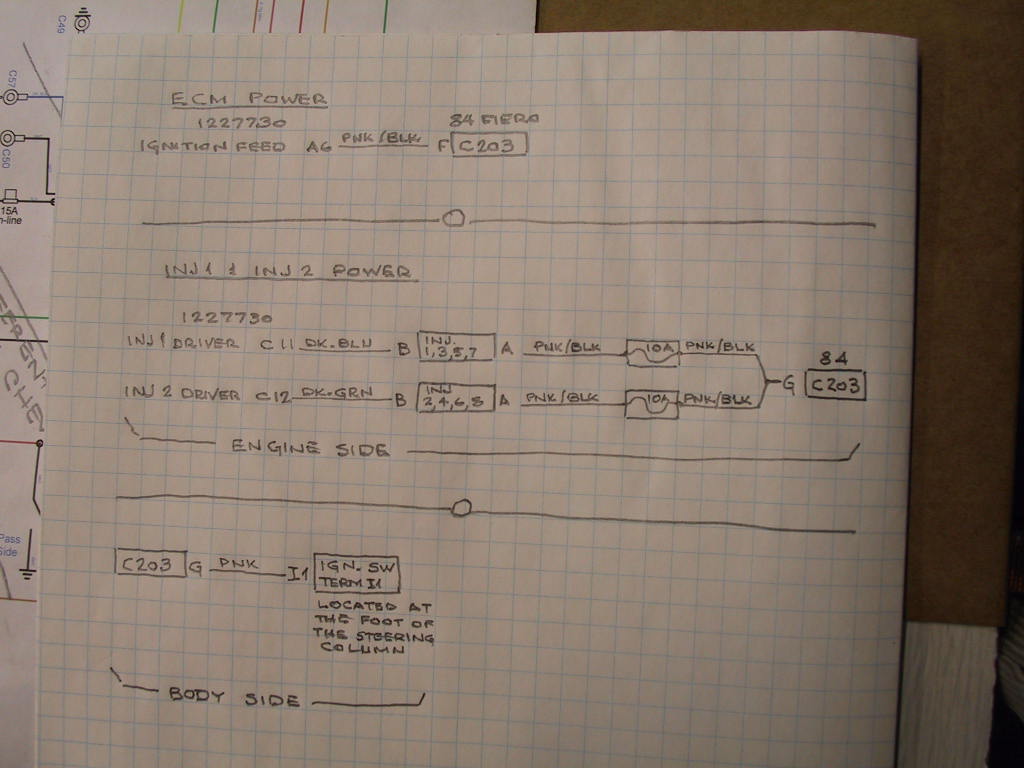 C49
C57
C50
15A
n-line
Pass
Side
ECM POWER
1227730
84 FIERO
IGNITION FEED A6 PNK/BLK F C203
INJ 1 & INJ 2 POWER
1227730
INJ 1 DRIVER C11 DK.BLU B INJ. 1,3,5,7 A PNK/BLK 10A PNK/BLK
84
G C203
INJ 2 DRIVER C12 DK.GRN B INJ 2,4,6,8 A PNK/BLK 10A PNK/BLK
ENGINE SIDE
C203 G PNK I1 IGN. SW
TERM I1
LOCATED AT
THE FOOT OF
THE STEERING
COLUMN
BODY SIDE